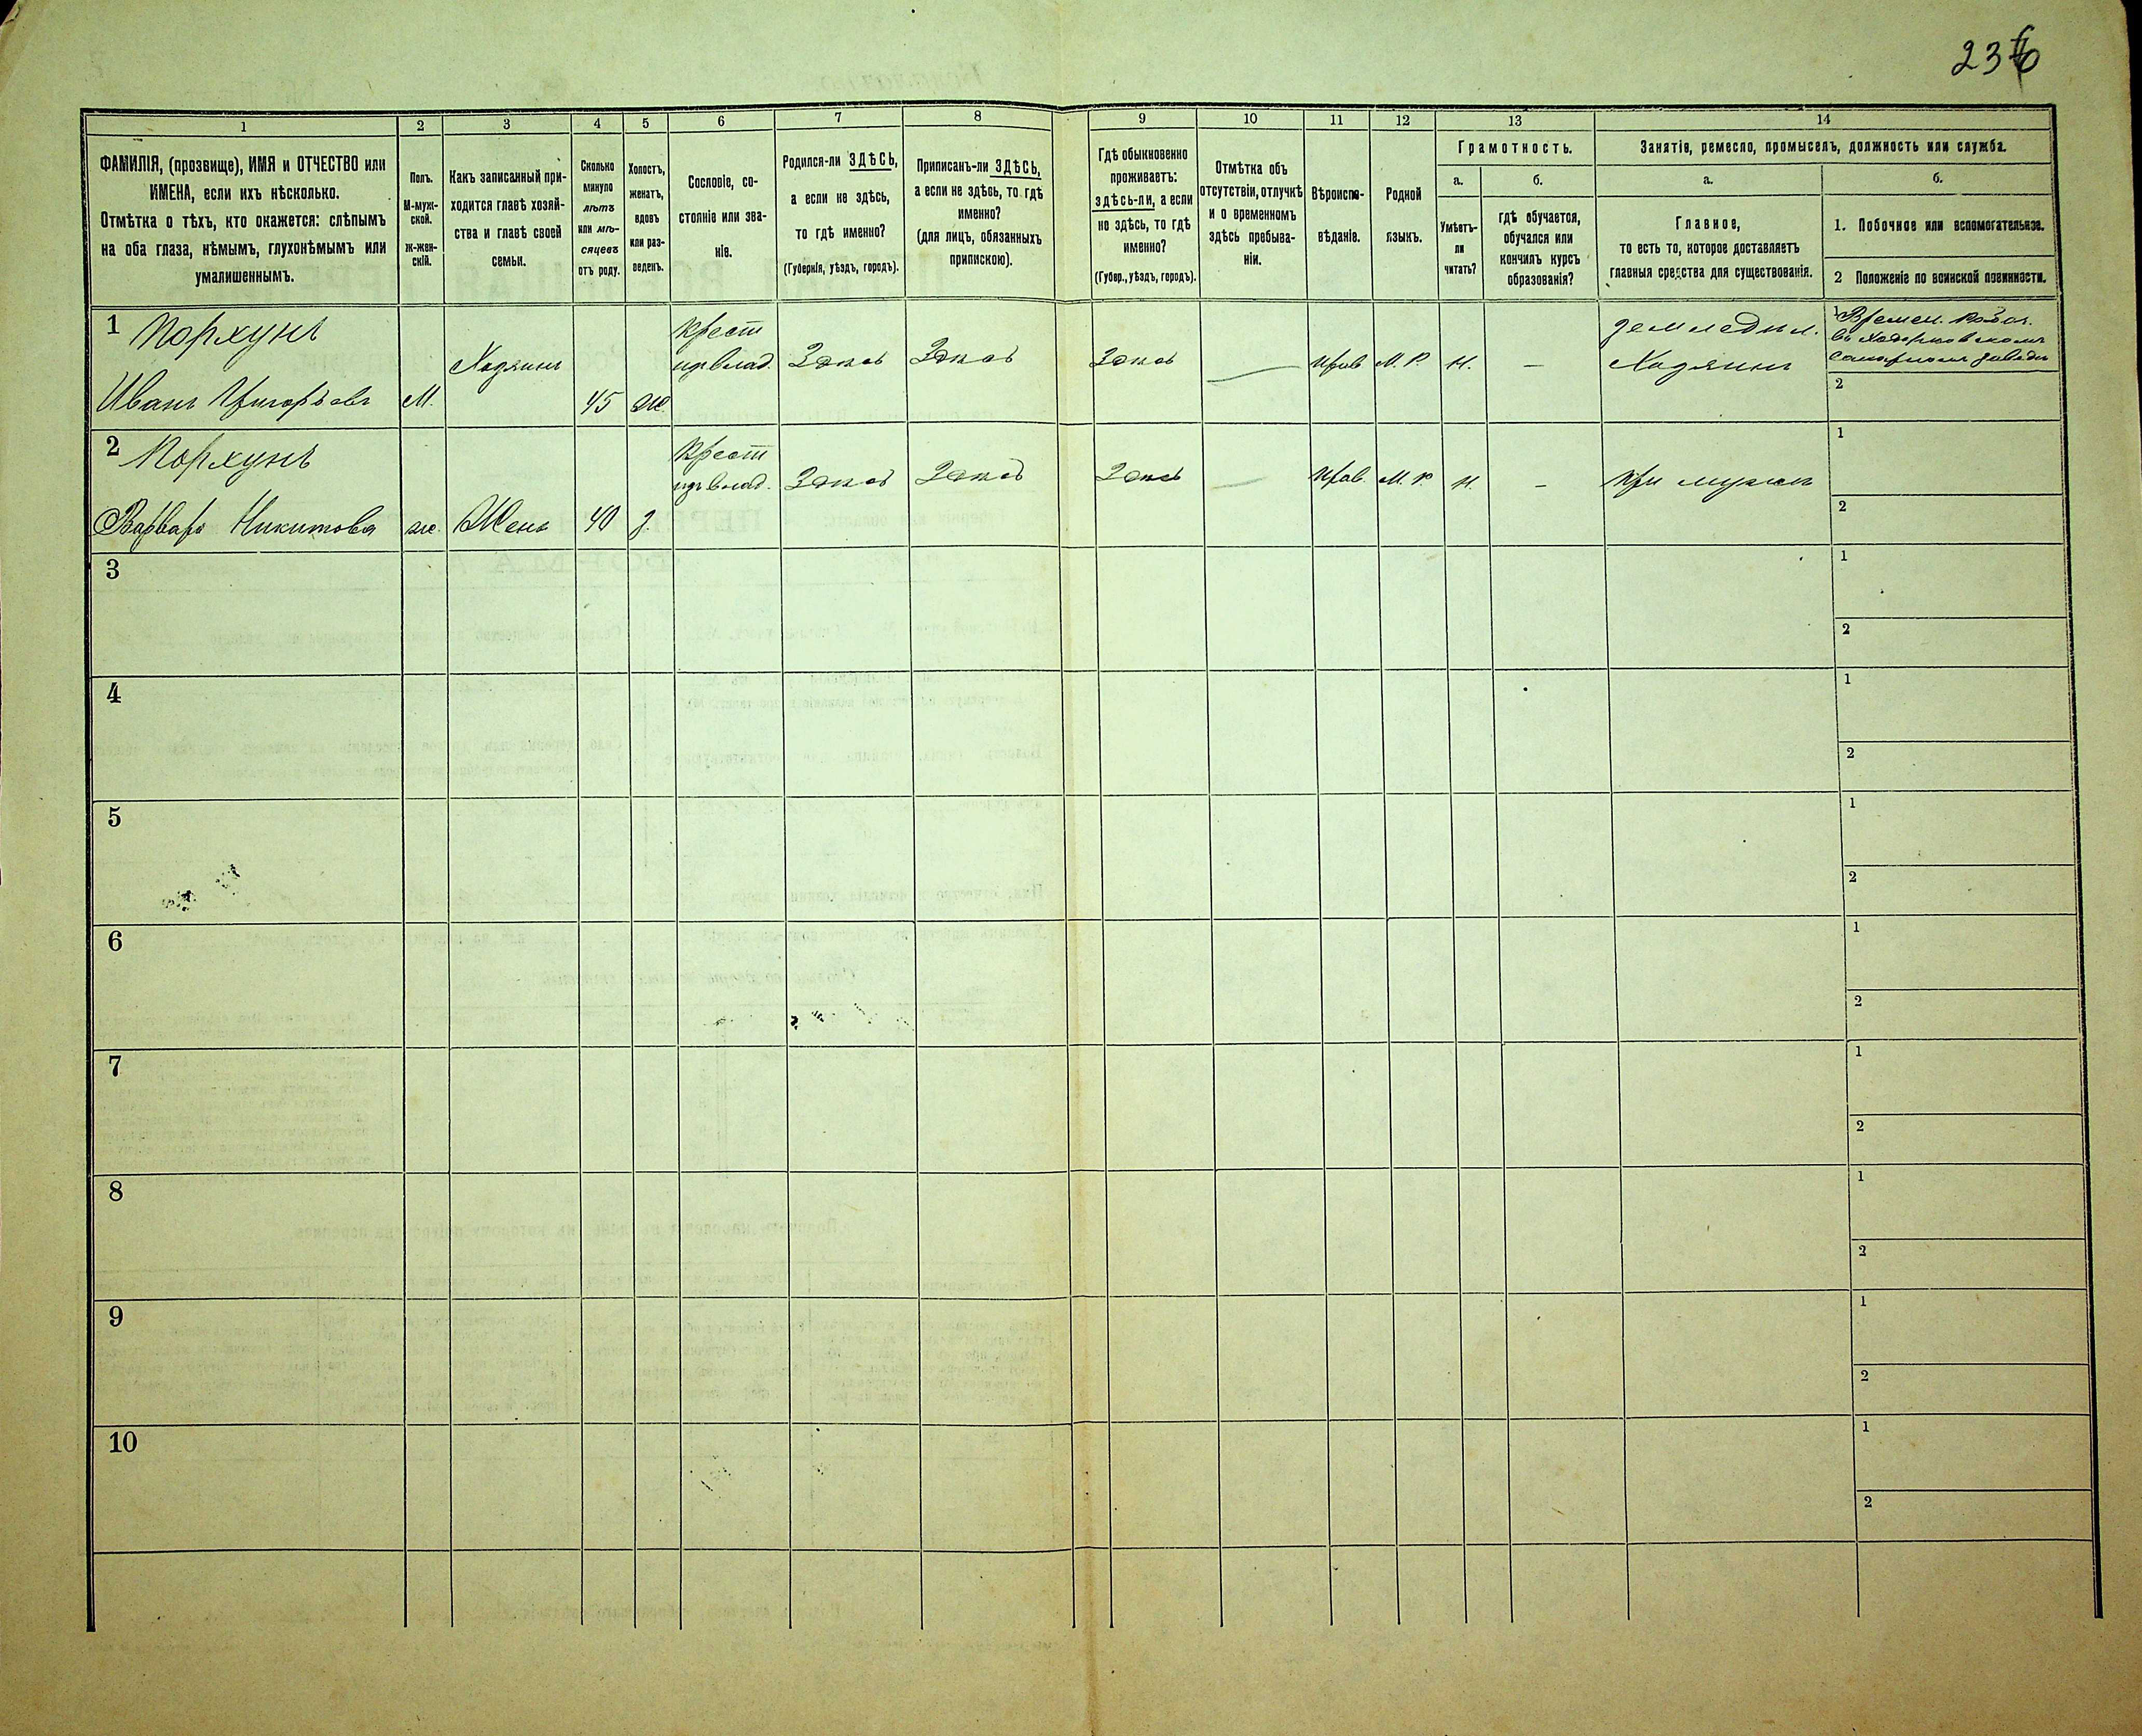 236
1 2 3 4 5 6 7 8 9 10 11 12 13 14
ФАМИЛІЯ, (прозвище), ИМЯ и ОТЧЕСТВО или
ИМЕНА, если ихъ нѣсколько.
Отмѣтка о тѣхъ, кто окажется: слѣпымъ
на оба глаза, нѣмымъ, глухонѣмымъ или
умалишеннымъ.
Полъ.
М-муж-
ской.
ж-жен-
скій.
Какъ записанный при-
ходится главѣ хозяй-
ства и главѣ своей
семьи.
Сколько
минуло
лѣтъ
или мѣ-
сяцевъ
отъ роду.
Холостъ,
женатъ,
вдовъ
или раз-
веденъ.
Сословіе, со-
стояніе или зва-
ніе.
Родился-ли ЗДѢСЬ,
а если не здѣсь,
то гдѣ именно?
(Губернія, уѣздъ, городъ).
Приписанъ-ли ЗДѢСЬ,
а если не здѣсь, то гдѣ
именно?
(для лицъ, обязанныхъ
припискою).
Гдѣ обыкновенно
проживаетъ:
здѣсь-ли, а если
не здѣсь, то гдѣ
именно?
(Губер., уѣздъ, городъ).
Отмѣтка объ
отсутствіи, отлучкѣ
и о временномъ
здѣсь пребыва-
ніи.
Вѣроиспо-
вѣданіе.
Родной
языкъ.
Грамотность.
а.
Умѣетъ-
ли
читать?
б.
гдѣ обучается,
обучался или
кончилъ курсъ
образованія?
Занятіе, ремесло, промыселъ, должность или служба.
а.
Главное,
то есть то, которое доставляетъ
главныя средства для существованія.
б.
1. Побочное или вспомогательное.
2 Положеніе по воинской повинности.
1 Порхунъ
Иванъ Григорьевъ
М.
Хозяинъ
45
Ж.
Крест
изъ влад.
Здѣсь
Здѣсь
Здѣсь
—
Прав.
М. Р.
Н.
—
Земледѣл.
Хозяинъ
1 Времен.
въ Ходорковскомъ
сахарномъ заводѣ
2
2 Порхунъ
Варвара Никитова
ж.
Жена
40
З.
Крест
изъ влад.
Здѣсь
Здѣсь
Здѣсь
—
Прав.
М. Р.
Н.
—
При мужѣ
1
2
3
1
2
4
1
2
5
1
2
6
1
2
7
1
2
8
1
2
9
1
2
10
1
2